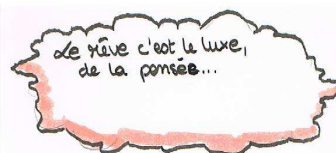 Le rêve c'est le luxe,
de la pensée...